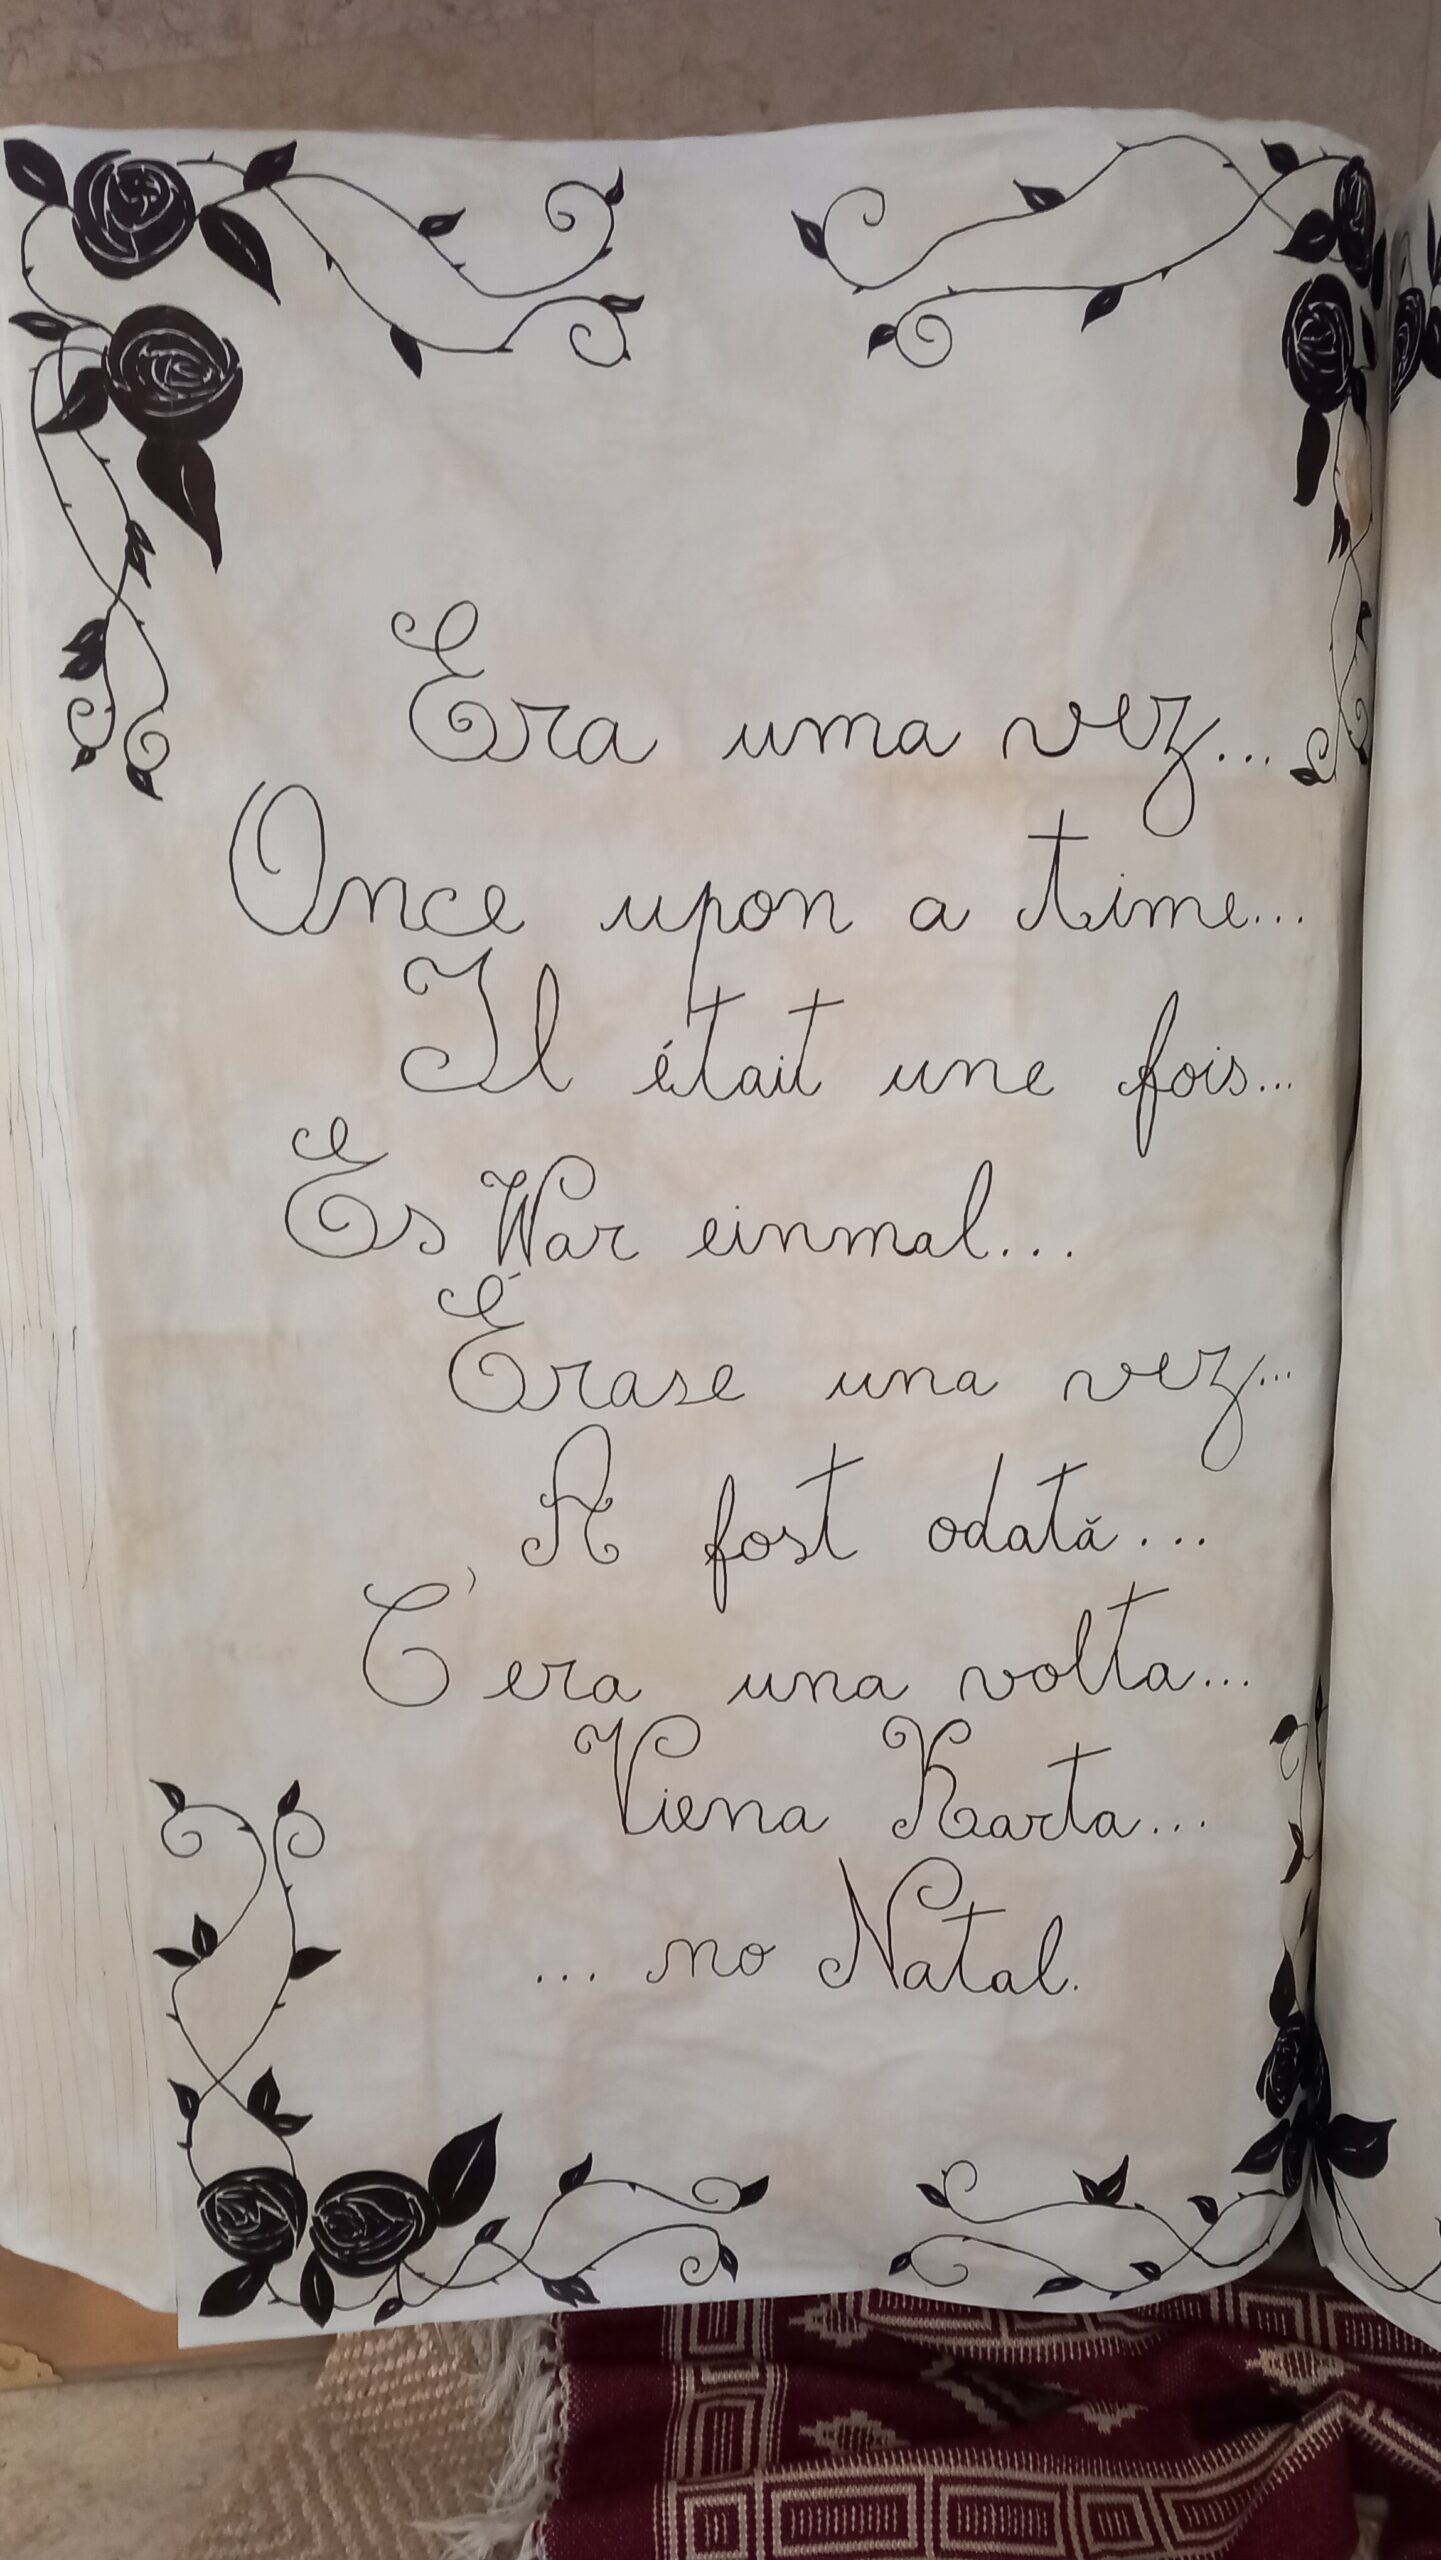 Era uma vez...
Once upon a time...
Il était une fois...
Es War einmal...
Érase una vez...
A fost odată...
C'era una volta...
Viena Karta...
... no Natal.